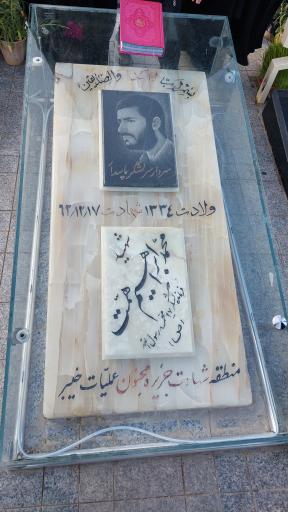 سردار سرلشکر پاسدار
ولادت ۱۳۳۴ شهادت ۶۲/۱۲/۱۷
شهید
محمد ابراهیم همت
فرمانده لشکر ۲۷ محمد رسول الله
(ص)
منطقه شهادت جزیره مجنون عملیات خیبر